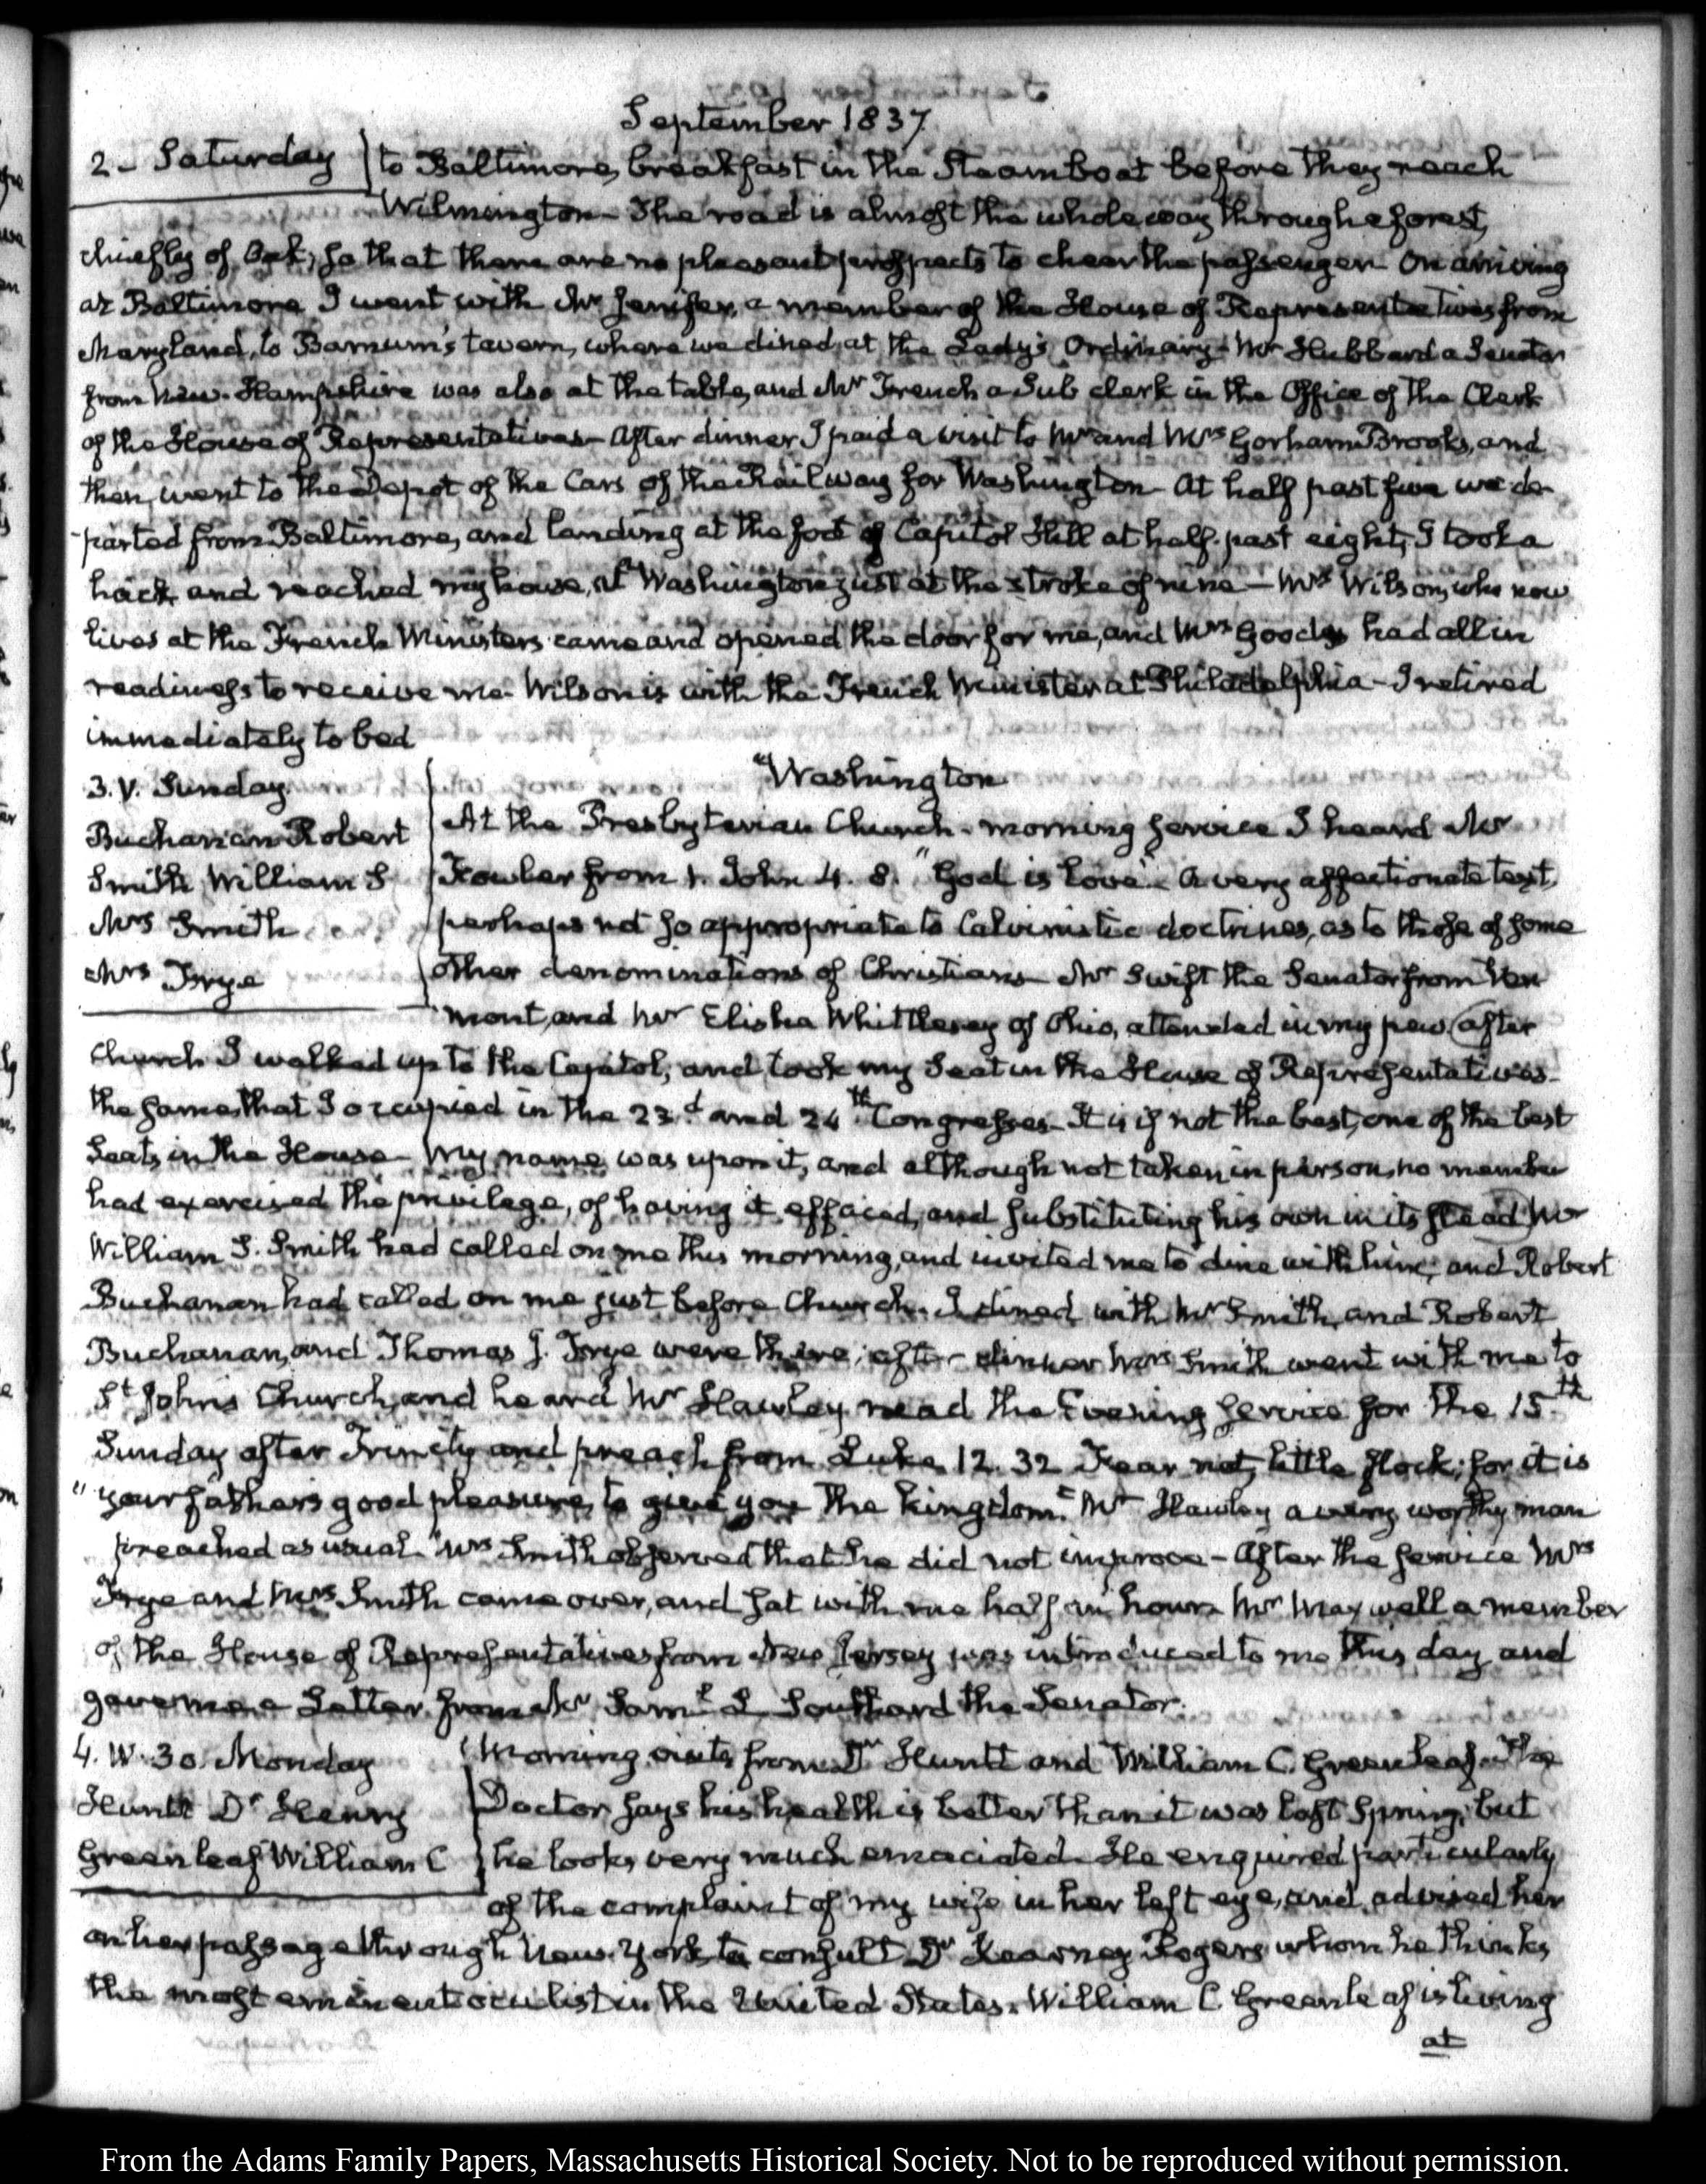 September 1837
2 - Saturday
to Baltimore, breakfast in the Steamboat before they reach
Wilmington - The road is almost the whole way through a forest,
chiefly of Oak; so that there are no pleasant prospects to cheer the passenger - On arriving
at Baltimore I went with Mr Jenifer, a member of the House of Representatives from
Maryland, to Barnum's tavern, where we dined at the Lady's Ordinary - Mr Hubbard a Senator
from New-Hampshire was also at the table, and Mr French a Sub clerk in the Office of the Clerk
of the House of Representatives - After dinner I paid a visit to Mr and Mrs Gorham Brooks, and
then went to the Depot of the Cars of the Railway for Washington - At half past five we de-
-parted from Baltimore, and landing at the foot of Capitol Hill at half past eight, I took a
hack and reached my house, at Washington just at the stroke of nine - Mrs Wilson, who now
lives at the French Ministers came and opened the door for me, and Mrs Goods had all in
readiness to receive me - Wilson is with the French Minister at Philadelphia - I retired
immediately to bed
3. V. Sunday.
Buchanan Robert
Smith William S
Mrs Smith
Mrs Frye
Washington
At the Presbyterian Church - morning service I heard Mr
Fowler from 1. John 4. 8. "God is love" - A very affectionate text,
perhaps not so appropriate to Calvinistic doctrines, as to those of some
other denominations of Christians - Mr Swift the Senator from Ver
mont, and Mr Elisha Whittlesey of Ohio, attended in my pew (after
Church I walked up to the Capitol, and took my Seat in the House of Representatives -
the same that I occupied in the 23.d and 24th Congresses - It is if not the best, one of the best
Seats in the House - My name was upon it, and although not taken in person, no member
had exercised the privilege, of having it effaced, and substituting his own in its stead) Mr
William S. Smith had called on me this morning, and invited me to dine with him; and Robert
Buchanan had called on me just before Church. I dined with Mr Smith, and Robert
Buchanan, and Thomas J. Frye were there; after dinner Mrs Smith went with me to
St Johns Church, and heard Mr Hawley read the Evening service for the 15th
Sunday after Trinity and preach from Luke 12. 32 Fear not, little flock; for it is
"your father's good pleasure, to give you the kingdom." Mr Hawley a very worthy man
preached as usual. Mrs Smith observed that he did not improve - After the service Mrs
Frye and Mrs Smith came over, and sat with me half an hour. Mr Maxwell a member
of the House of Representatives from New Jersey was introduced to me this day and
gave me a Letter from Mr Saml L Southard the Senator.
4. IV. 30. Monday
Huntt Dr Henry
Greenleaf William C
Morning visits from Dr Huntt and William C. Greenleaf. The
Doctor says his health is better than it was last Spring; but
he looks very much emaciated. He enquired particularly
of the complaint of my wife in her left eye, and advised her
on her passage through New-York to consult Dr Kearney Rogers whom he thinks
the most eminent oculist in the United States. William C Greenleaf is living
at
From the Adams Family Papers, Massachusetts Historical Society. Not to be reproduced without permission.